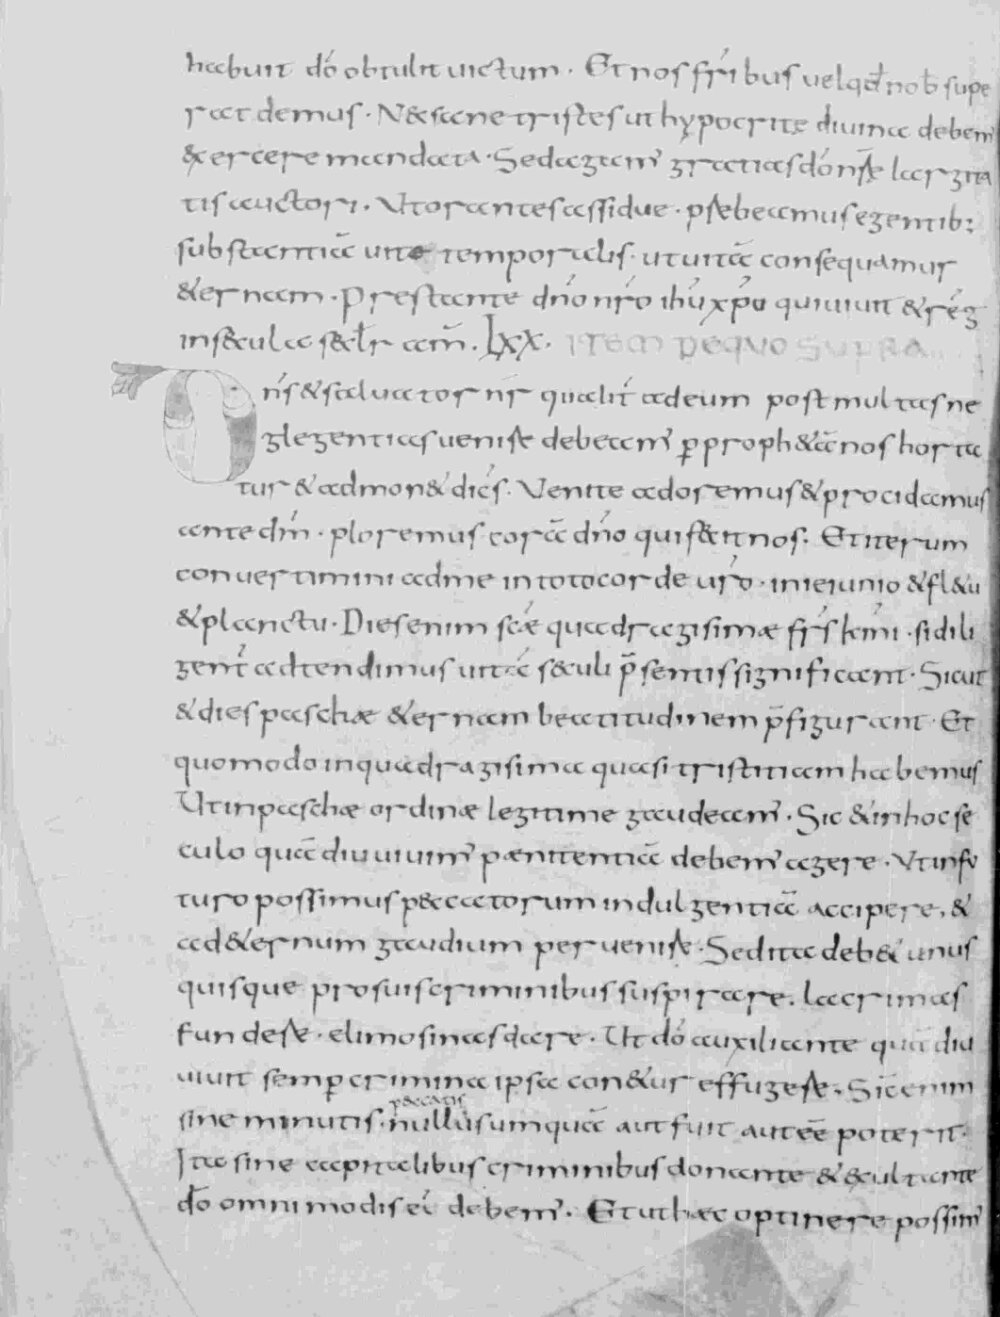 habuit dō obtulit uictum · Et nos fr̄ibus uel qd̄ nob̄ supe
rat demus · N& sane tristes ut hypocritę diuina debem̄
&ercere mandata · Sed agam̄ gratias dō nr̄e largita
tis auctori · Ut orantes assidue · p̱beamus egentib;
substantiā uitę temporalis · ut uitā consequamur
&ernam · Prestante dn̄o nr̄o ih̄u xp̄o qui uiuit & rēg
in sęcula sęcl̄r am̄ · Lxx · ITEM DE QUO SUPRA
Dn̄s & saluator nr̄ qualit̄ ad eum post multas ne
glegentias uenire debeam̄ p̱ proph&ā nos horta
tur & admon& diċs · Venite adoremus & procidamus
ante dm̄ · ploremus corā dn̄o qui fecit nos · Et iterum
conuertimini ad me in toto corde ur̄o · in ieiunio & fl&u
& planctu · Dies enim sc̄æ quadragisimæ fr̄s km̄i · si dili
gent̄ adtendimus uitā sęculi p̄sentis significant · Sicut
& dies paschæ &ernam beatitudinem p̄figurant · Et
quomodo in quadragisima quasi tristitiam habemus
Ut in paschæ ordinæ legitime gaudeam̄ · Sic & in hoc se
culo quā diu uiuim̄ pænitentiā debem̄ agere · Ut in fu
turo possimus p&catorum indulgentiā accipere, &
ad &ernum gaudium peruenire · Sed ita deb& unus
quisque pro suis criminibus suspirare, lacrimas
fundere · elimosinas dare · Ut dō auxiliante quā diu
uiuit semp̱ crimina ipsa con&ur effugere · Sic enim
p&catis
sine minutis · nullus umquā aut fuit aut eē poterit ·
Ita sine capitalibus criminibus donante & &ultante
dō omnimodis eē debem̄ · Et ut hæc optinere possim̄